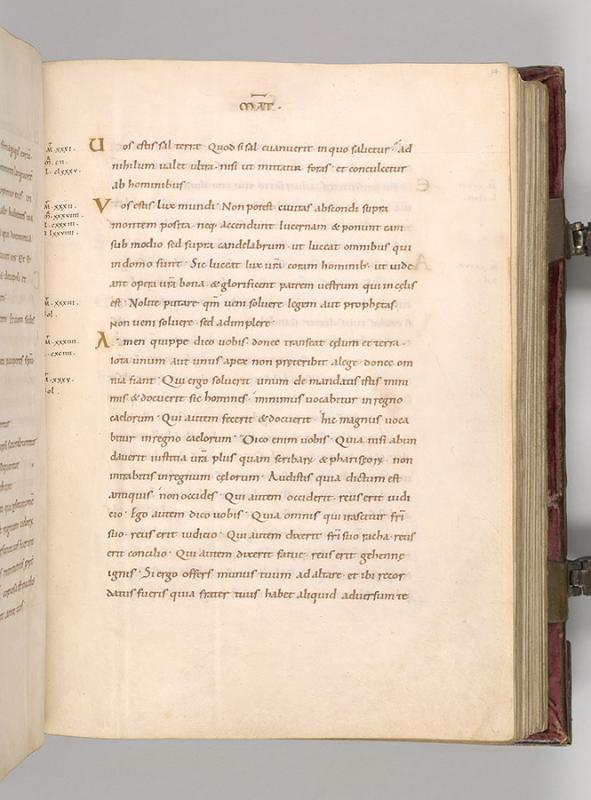 MAT̅ ·
Uos estis sal terrae · Quod si sal euanuerit in quo salietur · ad
nihilum ualet ultra · nisi ut mittatur foras · et conculcetur
ab hominibus ·
Vos estis lux mundi · Non potest ciuitas abscondi supra
montem posita neq; accendunt lucernam & ponunt eam
sub modio sed supra candelabrum · ut luceat omnibus qui
in domo sunt · Sic luceat lux ur̅a coram hominib; ut uide
ant opera ur̅a bona · & glorificent patrem uestrum qui in cęlis
est · Nolite putare qm̅ ueni soluere legem aut prophetas ·
Non ueni soluere · sed adimplere ·
Amen quippe dico uobis · donec transeat cęlum et terra ·
iota unum aut unus apex non pręteribit a lege · donec om
nia fiant · Qui ergo soluerit unum de mandatis istis mini
mis & docuerit sic homines · minimus uocabitur in regno
caelorum · Qui autem fecerit & docuerit · hic magnus uoca
bitur in regno caelorum · Dico enim uobis · Quia nisi abun
dauerit iustitia ur̅a plus quam scribarꝝ & phariseorꝝ · non
intrabitis in regnum cęlorum · Audistis quia dictum est
antiquis · non occides · Qui autem occiderit · reus erit iudi
cio · Ego autem dico uobis · Quia omnis qui irascitur fr̅i
suo · reus erit iudicio · Qui autem dixerit fr̅i suo racha · reus
erit concilio · Qui autem dixerit fatue · reus erit gehennę
ignis · Si ergo offers munus tuum ad altare · et ibi recor
datus fueris quia frater tuus habet aliquid aduersum te
M̅ · XXXI ·
M̅ · XXXII ·
M̅ · XXXIII ·
M̅ · XXXIIII ·
M̅ · XXXV ·